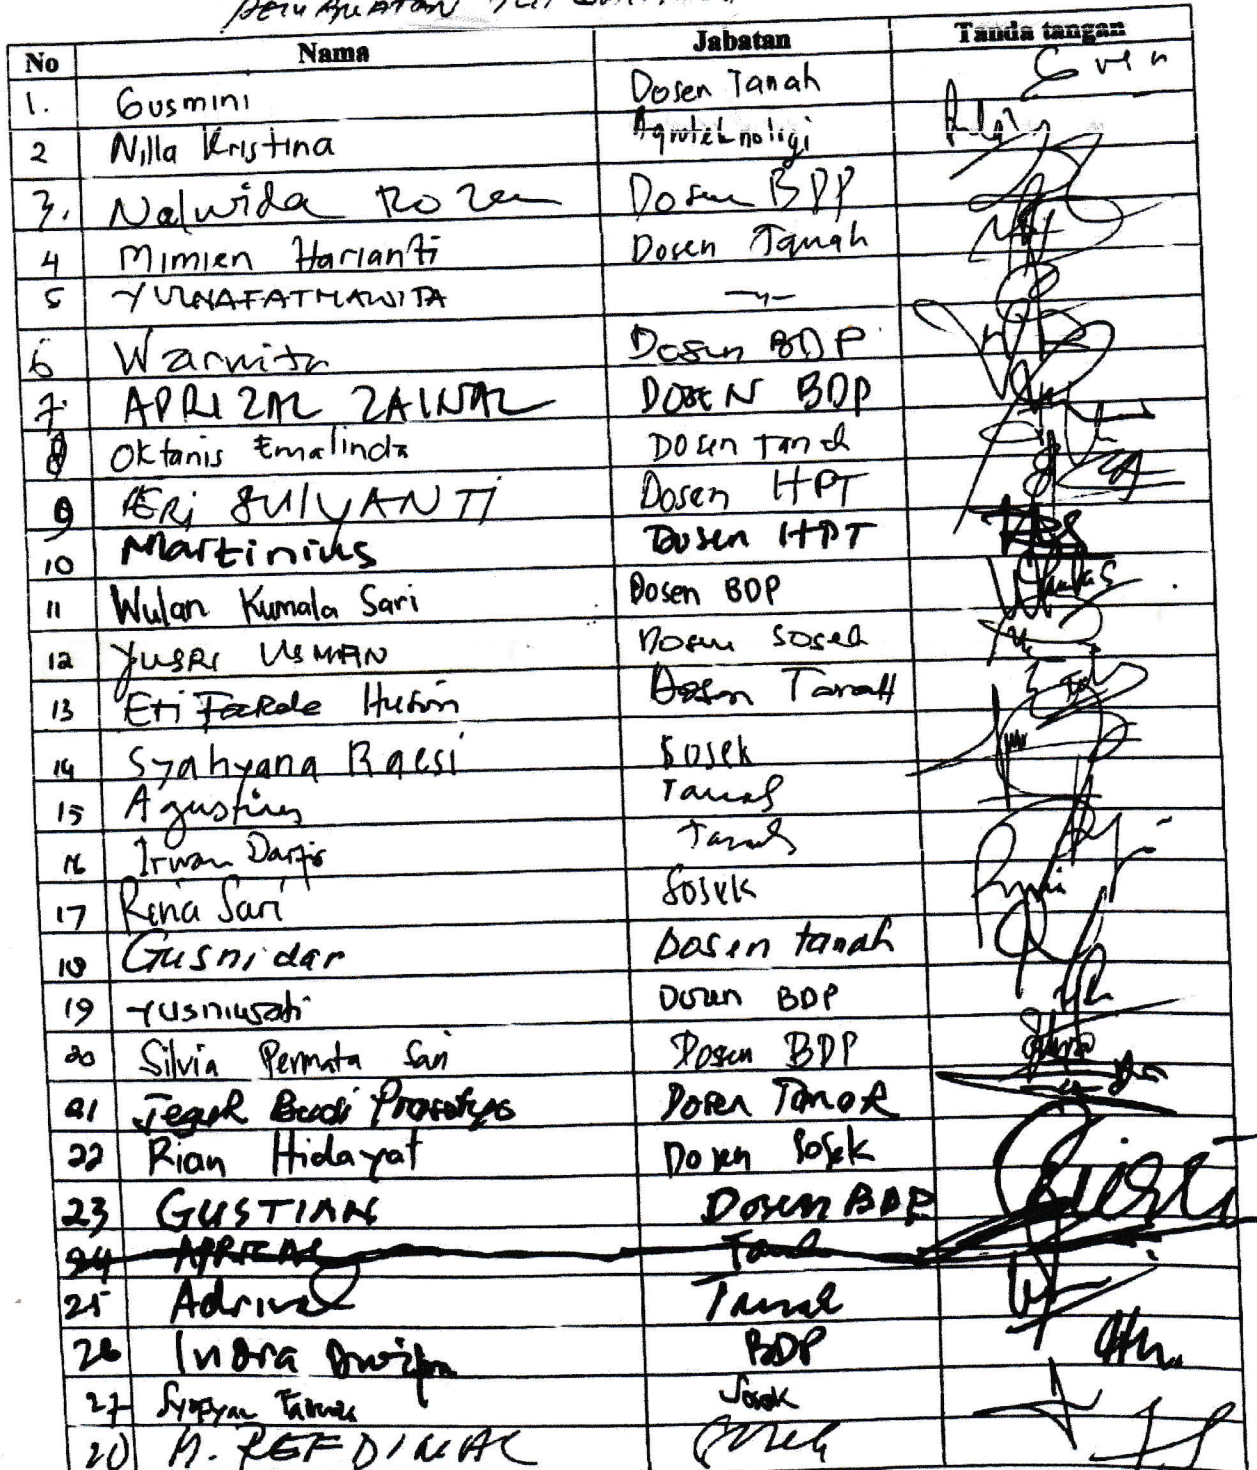 No Nama Jabatan Tanda tangan
1. Gusmini Dosen Tanah
2 Nilla Kristina Agroteknologi
3. Nalwida Rozen Dosen BDP
4 Mimien Harianti Dosen Tanah
5 YULNAFATMAWITA —〃—
6 Warnita Dosen BDP
7. APRIZAL ZAINAL DOSEN BDP
8 Oktanis Emalinda Dosen Tanah
9 ERi SULYANTI Dosen HPT
10 Martinius Dosen HPT
11 Wulan Kumala Sari Dosen BDP
12 YUSRI USMAN Dosen Sosek
13 Eti Farda Husin Dosen Tanah
14 Syahyana Raesi Sosek
15 Agustian Tanah
16 Irwan Darfis Tanah
17 Rina Sari Sosek
18 Gusnidar Dosen tanah
19 Yusniwati Dosen BDP
20 Silvia Permata Sari Dosen BDP
21 Teguh Budi Prasetyo Dosen Tanah
22 Rian Hidayat Dosen Sosek
23 GUSTIAN Dosen BDP
24 APRIZAL Tanah
25 Adrinal Tanah
26 Indra Dwipa BDP
27 Syofyan Fairuzi Sosek
28 M. REFDINAL Sosek